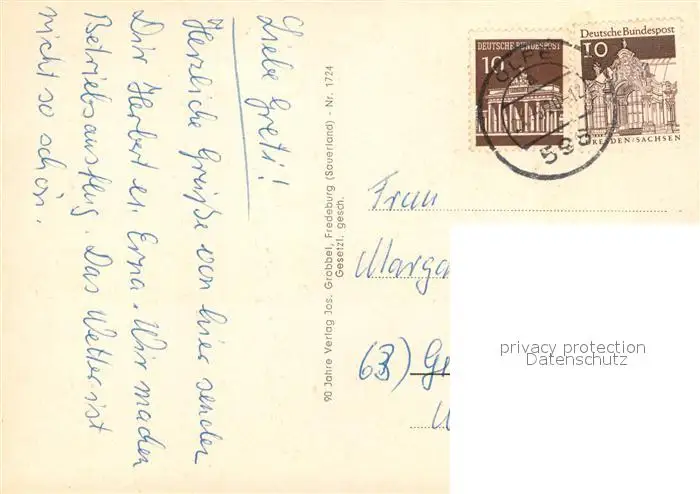 Liebe Greti!
Herzliche Grüße von hier senden
Dir Herbert u. Erna. Wir machen
Betriebsausflug. Das Wetter ist
nicht so schön.
90 Jahre Verlag Jos. Grobbel, Fredeburg (Sauerland) - Nr. 1724
Gesetzl. gesch.
DEUTSCHE BUNDESPOST
10
Deutsche Bundespost
10
DRESDEN/SACHSEN
OLPE
596
Frau
Marga
(63) Gi
privacy protection
Datenschutz